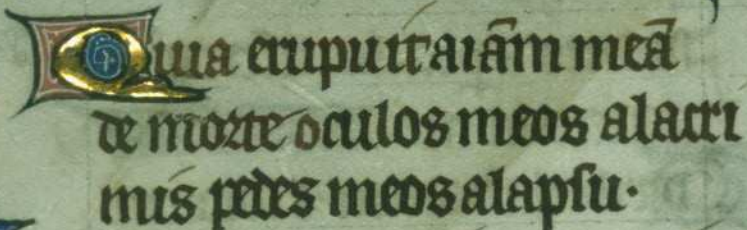 Quia eruputt aiām meā
de morte oculos meos alacri
mis pedes meos alapsu·